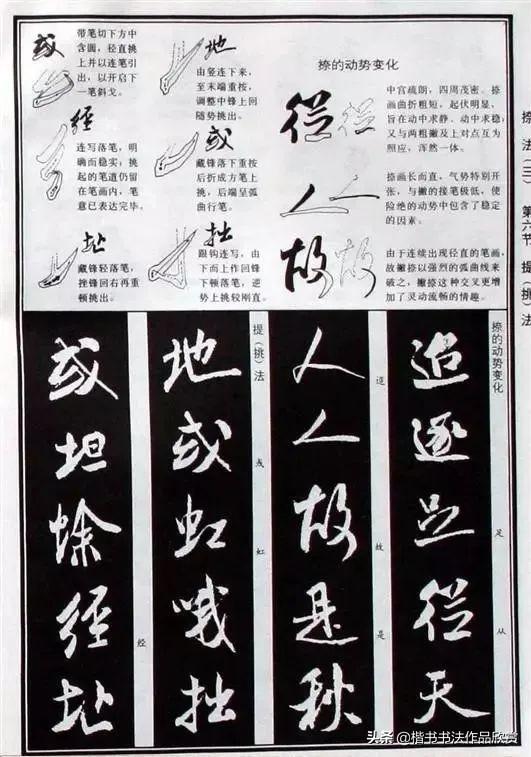 捺法(三) 第六节 提(挑)法
捺的动势变化
從
中宫疏朗,四周茂密。捺
画曲折粗短,起伏明显,
旨在动中求静、动中求稳;
又与两粗撇及上对点互为
照应,浑然一体。
人
捺画长而直,气势特别开
张,与撇的接笔极低,使
险绝的动势中包含了稳定
的因素。
故
由于连续出现径直的笔画,
故撇捺以强烈的弧曲线来
破之,撇捺这种交叉更增
加了灵动流畅的情趣。
地
由竖连下来,
至末端重按,
调整中锋上回
随势挑出。
或
藏锋落下重按
后折成方笔上
挑,后端呈弧
曲行笔。
拙
跟钩连写,由
下而上作回锋
下顿落笔,逆
势上挑较刚直。
或
带笔切下方中
含圆,径直挑
上并以连笔引
出,以开启下
一笔斜戈。
經
连写落笔,明
确而稳实,挑
起的笔道仍留
在笔画内,笔
意已表达完毕。
址
藏锋轻落笔,
挫锋回右再重
顿挑出。
捺的动势变化
追逐足從天
足
从
人人故是秋
逵
故
是
提(挑)法
地或虹哦拙
或
虹
或坦蜍經址
经
头条 @楷书书法作品欣赏